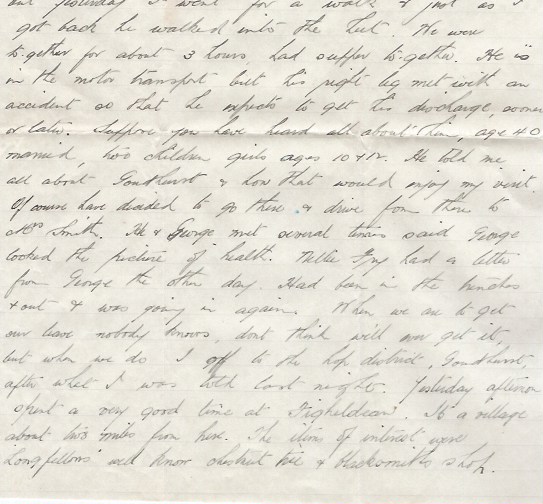 out yesterday I went for a walk & just as I
got back he walked into the hut. We were
to-gether for about 3 hours, had supper to-gether. He is
in the motor transport but his right leg met with an
accident so that he expects to get his discharge, sooner
or later. Suppose you have heard all about him, age 40
married, two children girls ages 10 & 12. He told me
all about Goudhurst & how that would enjoy my visit.
Of course have decided to go there & drive from there to
Mrs Smith. He & George met several times said George
looked the picture of health. Nellie Fry had a letter
from George the other day. Had been in the trenches
& out & was going in again. When we are to get
our leave nobody knows, dont think will ever get it,
but when we do I off to the hop district, Goudhurst,
after what I was told last night. Yesterday afternoon
spent a very good time at Figheldean. It a village
about two miles from here. The items of interest were
Longfellows well know chestnut tree & blacksmiths shop.